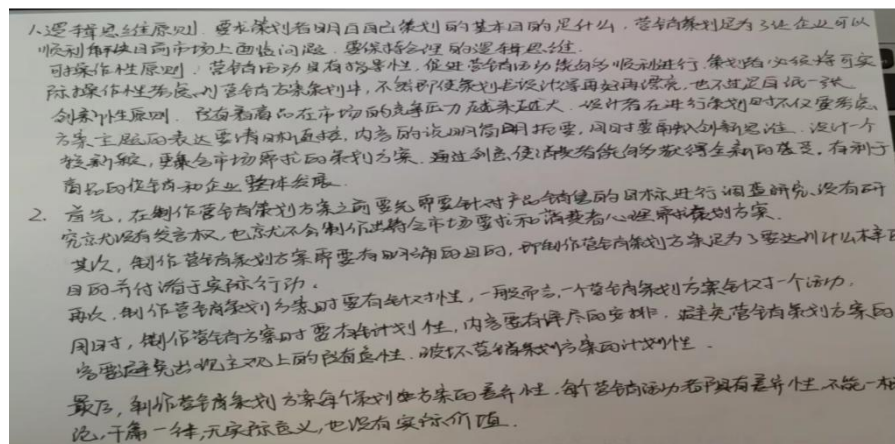 1、逻辑思维原则．要求策划者明白自己策划的基本目的是什么，营销策划是为了让企业可以
顺利解决目前市场上面临问题．要保持合理的逻辑思维．
可操作性原则．营销活动具有指导性，促进营销活动能够顺利进行．策划者必须将可实
际操作性考虑到营销方案策划中，不然即使策划书设计得再好再漂亮，也不过是白纸一张
创新性原则．随着商品在市场的竞争压力越来越大．设计者在进行策划时不仅要考虑
方案主题的表达要清晰直接，内容的说明简明扼要，同时要融入创新思维．设计一个
较新颖，更集合市场需求的策划方案．通过创意，使消费者能够获得全新的感受，有利于
商品的促销和企业整体发展．
2. 首先，在制作营销策划方案之前要先需要针对产品销售的目标进行调查研究，没有研
究就没有发言权，也就不会制作出符合市场要求和消费者心理需求策划方案．
其次，制作营销策划方案需要有明确的目的，即制作营销策划方案是为了要达到什么样的
目的并付诸于实际行动．
再次．制作营销策划方案时要有针对性，一般而言，一个营销策划方案针对一个活动．
同时，制作营销方案时要有计划性，内容要有详尽的安排．避免营销策划方案的
容要避免出现主观上的随意性．破坏营销策划方案的计划性．
最后，制作营销策划方案每个策划案方案的差异性．每个营销活动都具有差异性，不能一概
论，千篇一律，无实际意义，也没有实际价值．